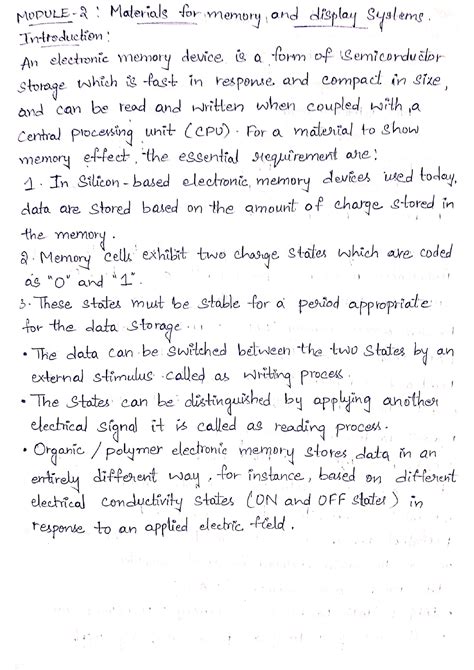 MODULE-2: Materials for memory and display Systems.
Introduction:
An electronic memory device is a form of Semiconductor
Storage which is fast in response and compact in size,
and can be read and written when coupled with a
central processing unit (CPU). For a material to show
memory effect, the essential requirement are:
1. In Silicon-based electronic memory devices used today,
data are stored based on the amount of charge stored in
the memory.
2. Memory cells exhibit two charge states which are coded
as "0" and "1".
3. These states must be stable for a period appropriate
for the data storage.
• The data can be switched between the two states by an
external stimulus called as writing process.
• The states can be distinguished by applying another
electrical signal it is called as reading process.
• Organic / polymer electronic memory stores data in an
entirely different way, for instance, based on different
electrical conductivity states (ON and OFF states) in
response to an applied electric field.